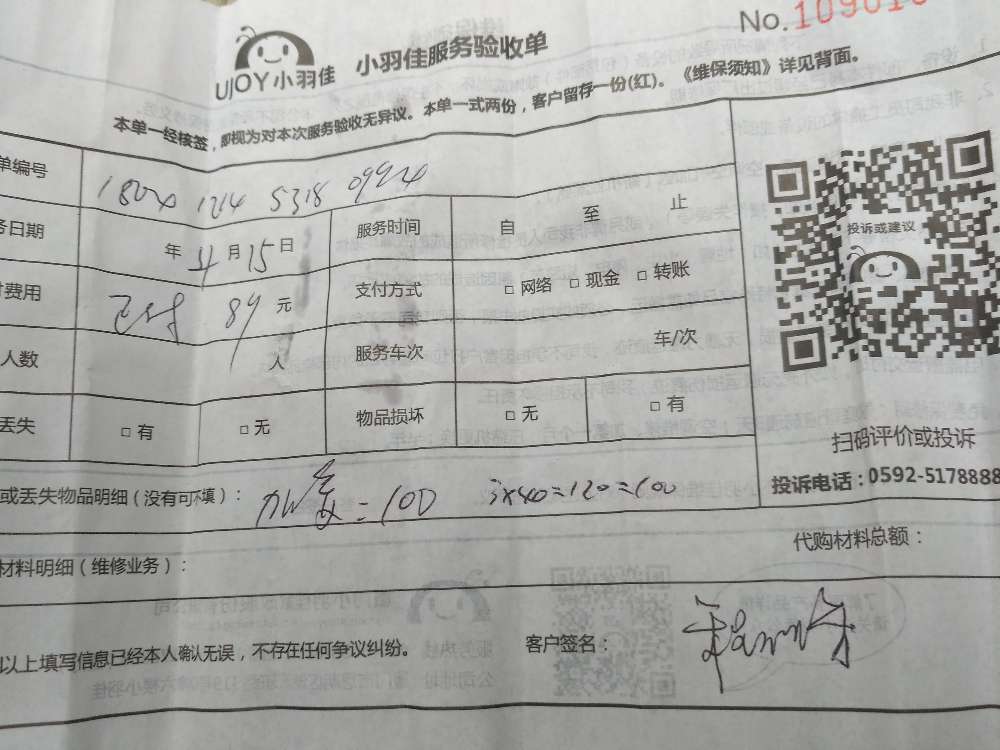 No.109016
UJOY小羽佳 小羽佳服务验收单
本单一经核签，即视为对本次服务验收无异议。本单一式两份，客户留存一份(红)。《维保须知》详见背面。
单编号 1804 1214 5318 0994
务日期 年 4月15日 服务时间 自 至 止
费用 89元 支付方式 □ 网络 □ 现金 □ 转账
人数 人 服务车次 车/次
丢失 □ 有 □ 无 物品损坏 □ 无 □ 有
投诉或建议
扫码评价或投诉
投诉电话：0592-5178888
或丢失物品明细（没有可填）： 加氟=100 3×40=120=100
材料明细（维修业务）： 代购材料总额：
以上填写信息已经本人确认无误，不存在任何争议纠纷。 客户签名：